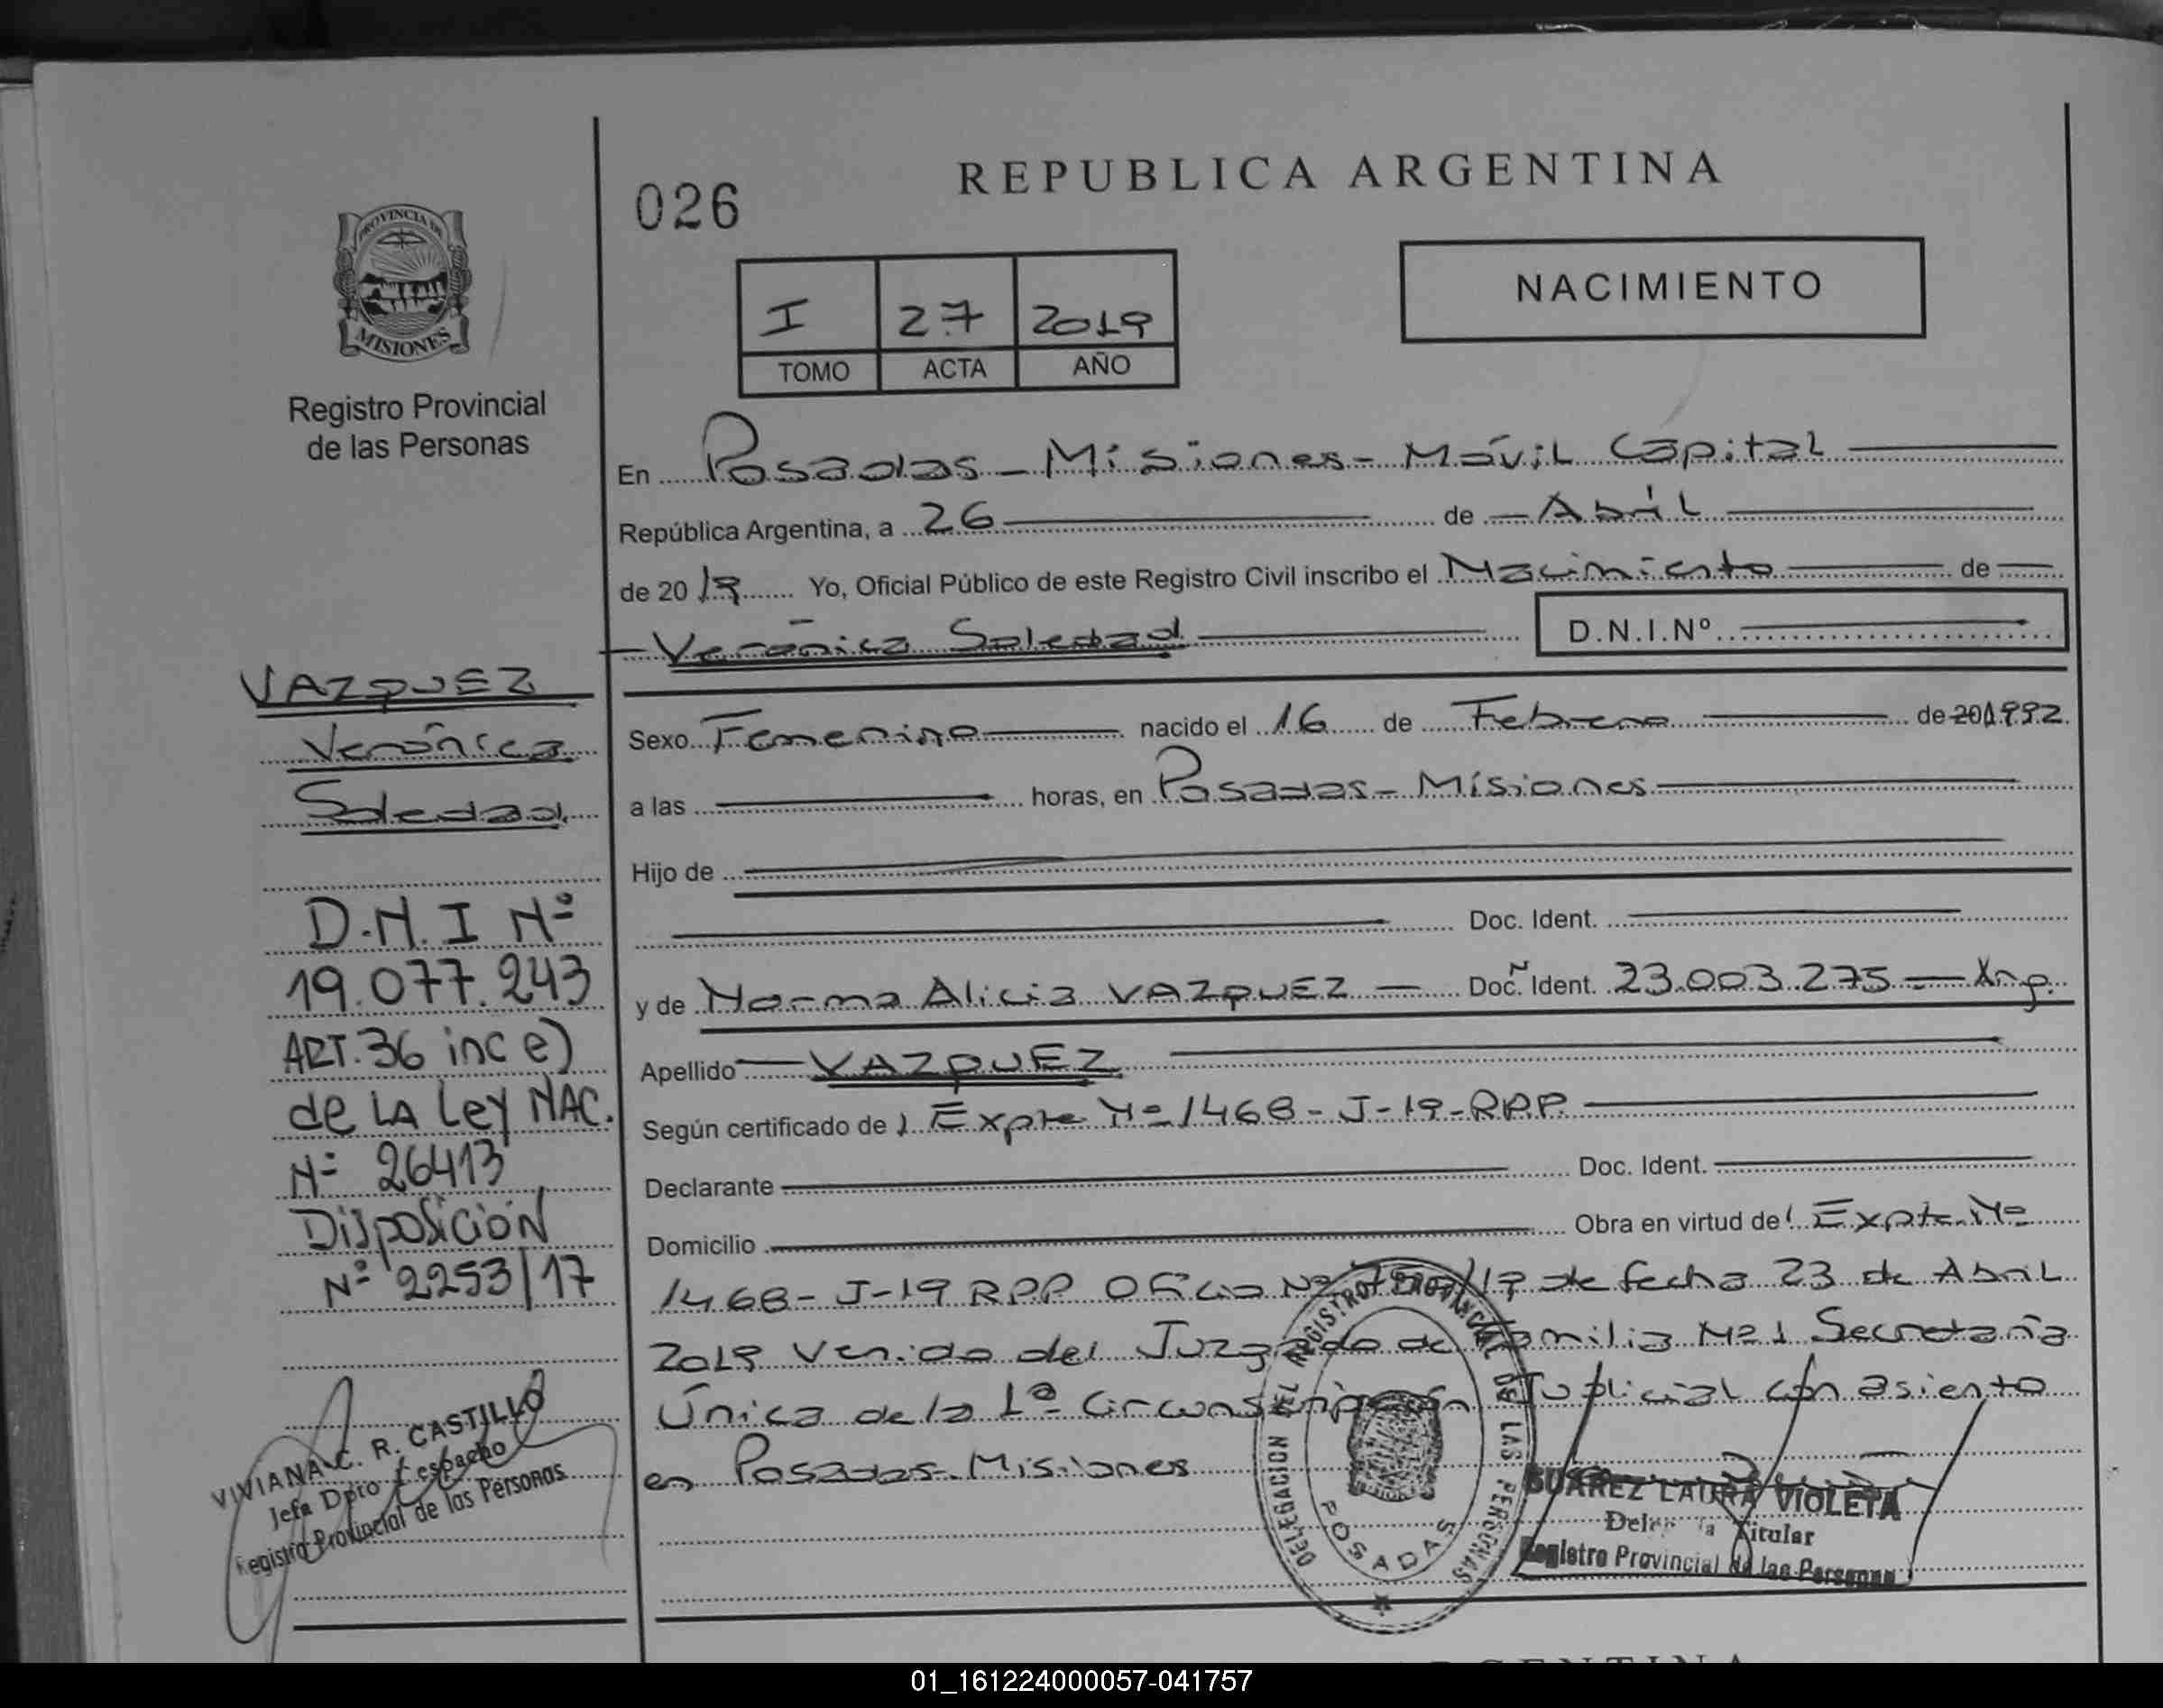 PROVINCIA DE
MISIONES
Registro Provincial
de las Personas
VAZQUEZ
Verónica
Soledad
D.N.I Nº
19.077.243
ART.36 inc e)
de LA Ley NAC.
Nº 26413
Disposición
Nº 2253/17
VIVIANA C. R. CASTILLO
Jefa Dpto Despacho
Registro Provincial de las Personas
026
REPUBLICA ARGENTINA
I 27 2019
TOMO ACTA AÑO
NACIMIENTO
En Posadas - Misiones - Móvil Capital
República Argentina, a 26 de Abril
de 20 19 Yo, Oficial Público de este Registro Civil inscribo el Nacimiento de
Verónica Soledad D.N.I.Nº
Sexo Femenino nacido el 16 de Febrero de 201992.
a las horas, en Posadas - Misiones
Hijo de
Doc. Ident.
y de Norma Alicia VAZQUEZ Doc. Ident. 23.003.275 - Arg.
Apellido VAZQUEZ
Según certificado de Expte Nº 1468-J-19-RPP
Declarante Doc. Ident.
Domicilio Obra en virtud de Expte. Nº
1468-J-19 RPP Oficio Nº /19 de fecha 23 de Abril
2019 Venido del Juzgado de Familia Nº 1 Secretaría
Única de la 1ª Circunscripción Judicial con asiento
en Posadas - Misiones
DELEGACION DEL REGISTRO PROVINCIAL DE LAS PERSONAS
POSADAS
SUAREZ LAURA VIOLETA
Titular
Registro Provincial de las Personas
01_161224000057-041757